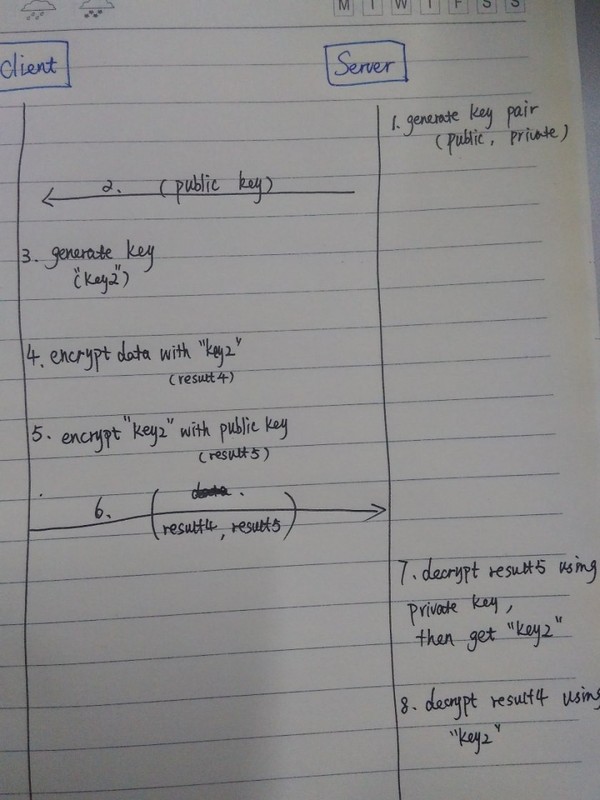 M T W T F S S
Client
Server
1. generate key pair
(public, private)
2. (public key)
3. generate key
("key2")
4. encrypt data with "key2"
(result4)
5. encrypt "key2" with public key
(result5)
6. ( data.
result4, result5 )
7. decrypt result5 using
private key,
then get "key2"
8. decrypt result4 using
"key2"